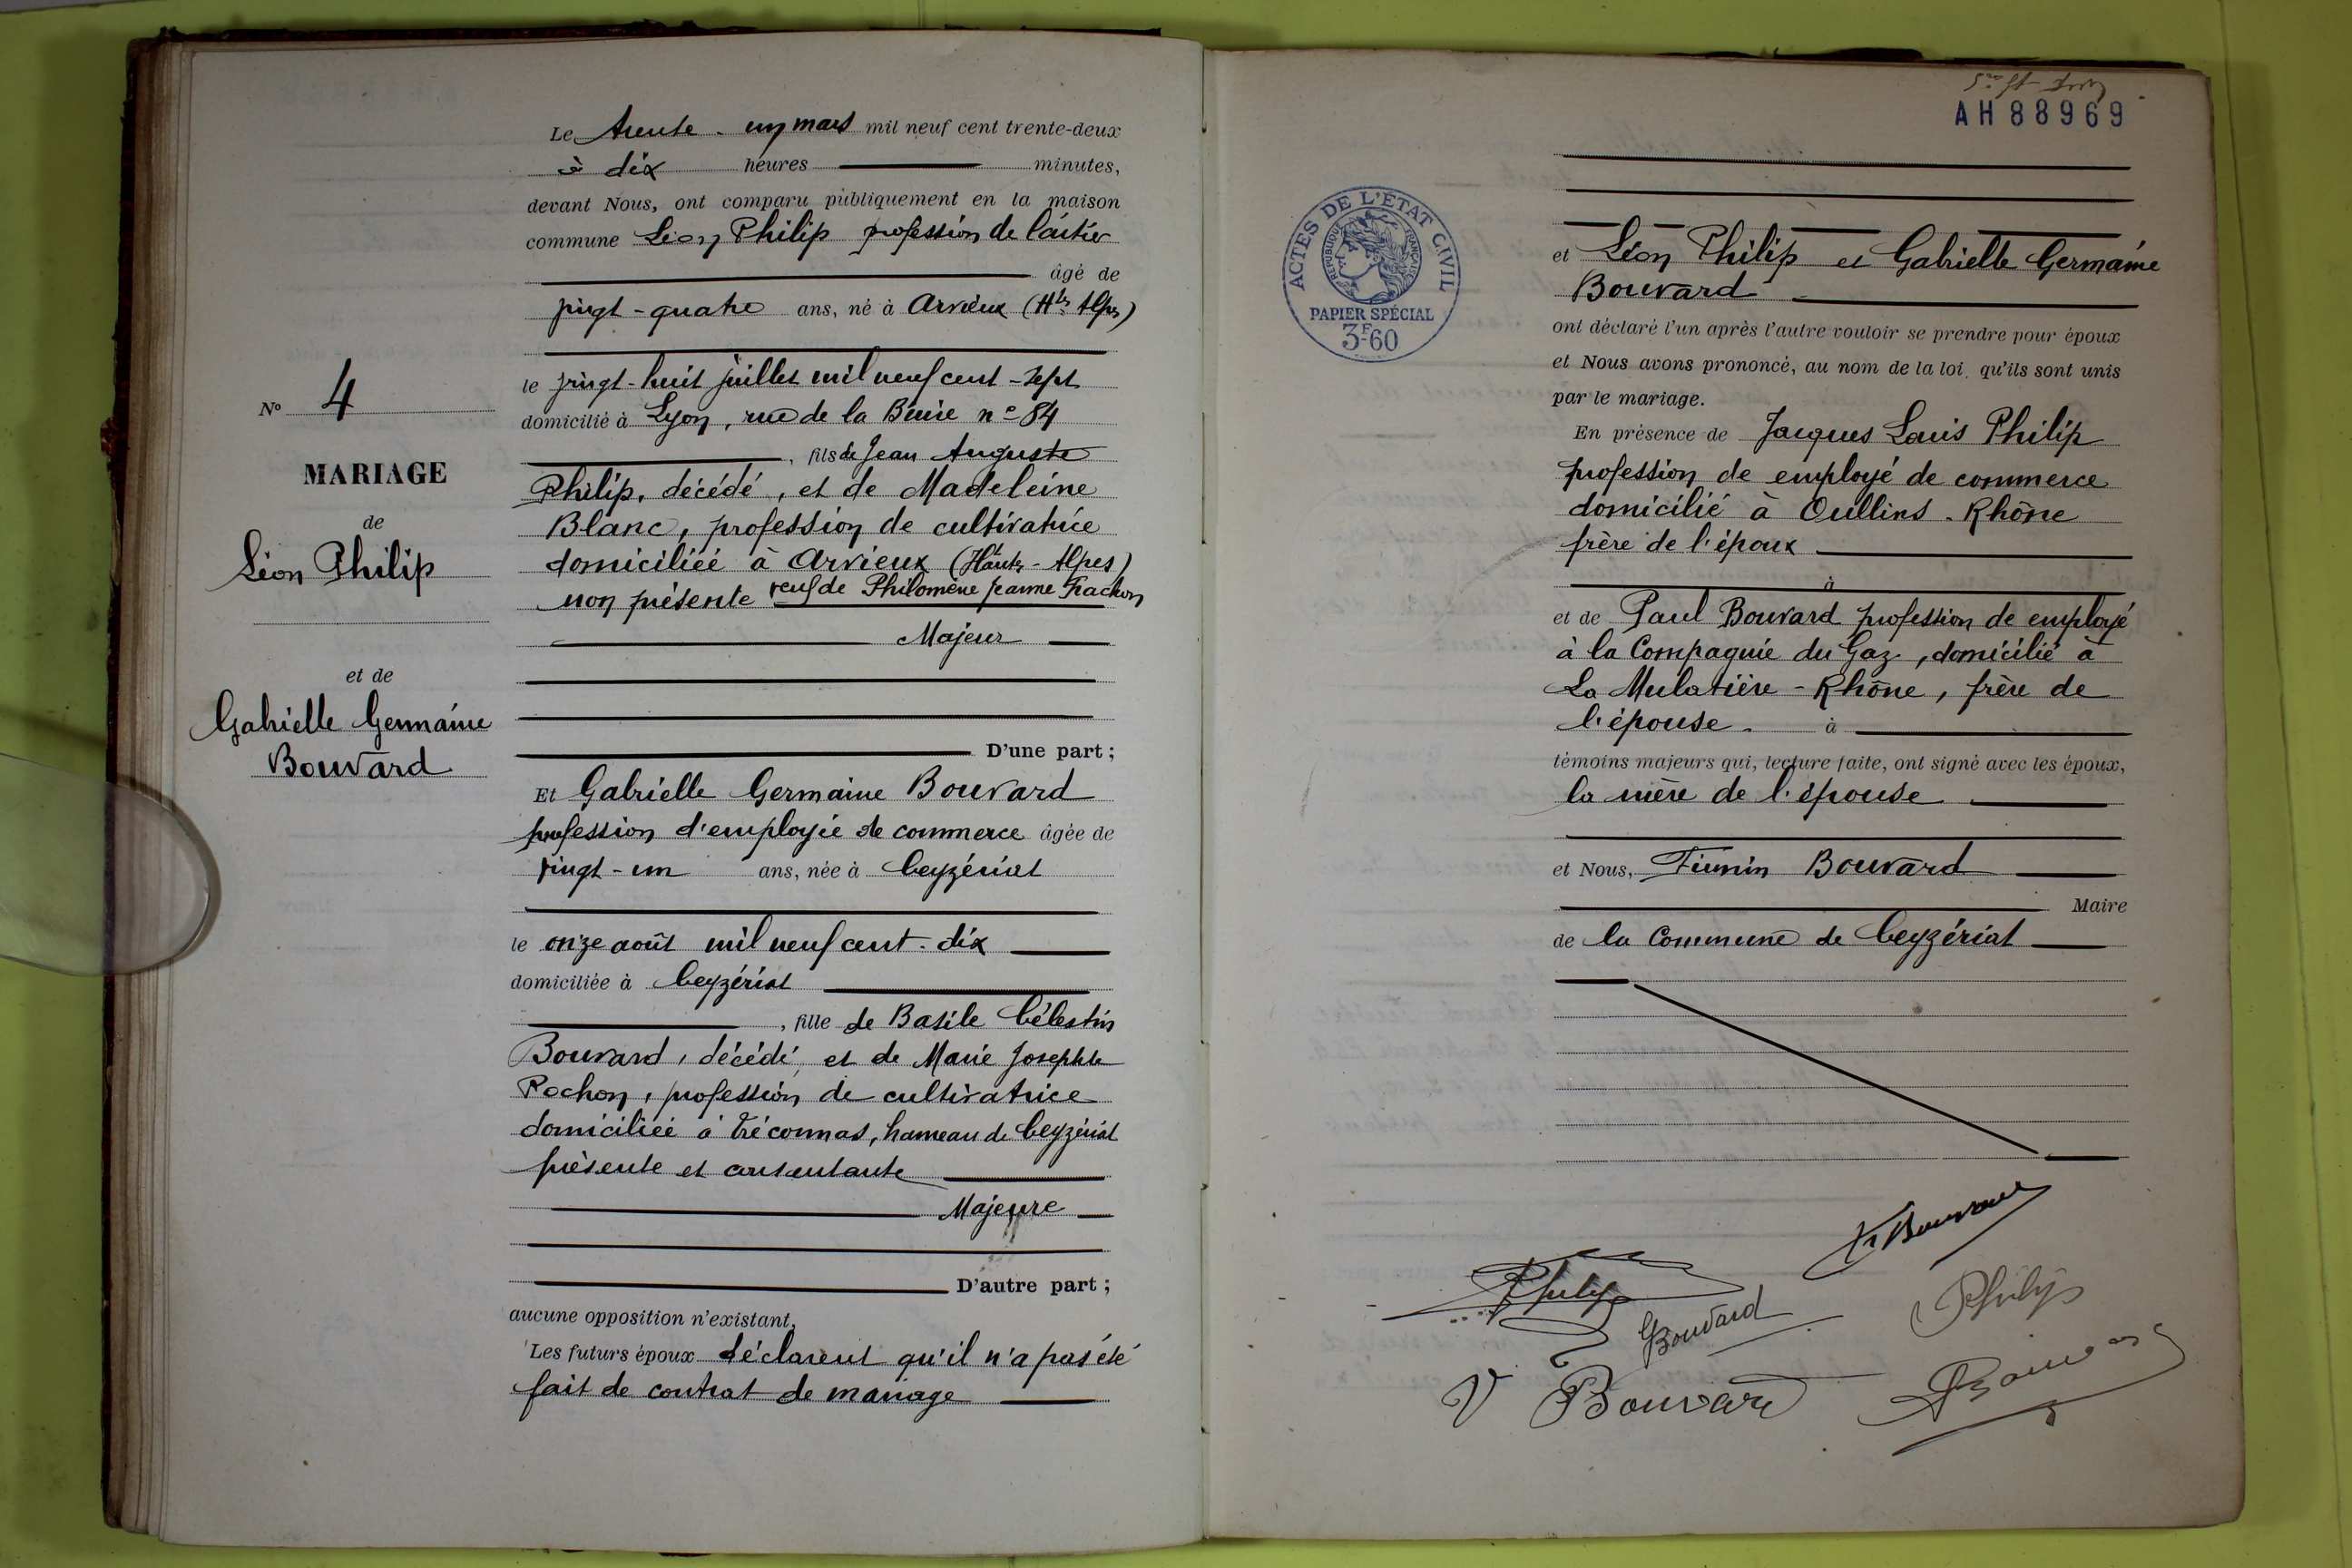 Le trente-un mars mil neuf cent trente-deux
à dix heures minutes,
devant Nous, ont comparu publiquement en la maison
commune Léon Philip profession de laitier
âgé de
vingt-quatre ans, né à Arvieux (Htes Alpes)
le vingt-huit juillet mil neuf cent-sept
domicilié à Lyon, rue de la Buire n° 84
, fils de Jean Auguste
Philip, décédé, et de Madeleine
Blanc, profession de cultivatrice
domiciliée à Arvieux (Hautes-Alpes)
non présente veuf de Philomène Jeanne Frachon
Majeur
D'une part ;
N° 4
MARIAGE
de
Léon Philip
et de
Gabrielle Germaine
Bouvard
Et Gabrielle Germaine Bouvard
profession d'employée de commerce âgée de
vingt-un ans, née à Ceyzériat
le onze août mil neuf cent-dix
domiciliée à Ceyzériat
, fille de Basile Célestin
Bouvard, décédé, et de Marie Josephte
Rochon, profession de cultivatrice
domiciliée à Tréconnas, hameau de Ceyzériat
présente et consentante
Majeure
D'autre part ;
aucune opposition n'existant,
Les futurs époux déclarent qu'il n'a pas été
fait de contrat de mariage
AH88969
ACTES DE L'ÉTAT CIVIL
RÉPUBLIQUE FRANÇAISE
PAPIER SPÉCIAL
3F60
et Léon Philip et Gabrielle Germaine
Bouvard
ont déclaré l'un après l'autre vouloir se prendre pour époux
et Nous avons prononcé, au nom de la loi, qu'ils sont unis
par le mariage.
En présence de Jacques Louis Philip
profession de employé de commerce
domicilié à Oullins-Rhône
frère de l'époux
à
et de Paul Bouvard profession de employé
à la Compagnie du Gaz, domicilié à
La Mulatière-Rhône, frère de
l'épouse. à
témoins majeurs qui, lecture faite, ont signé avec les époux,
la mère de l'épouse
et Nous, Firmin Bouvard
Maire
de la Commune de Ceyzériat
Bouvard
Philip
GBouvard
Philip
V Bouvard